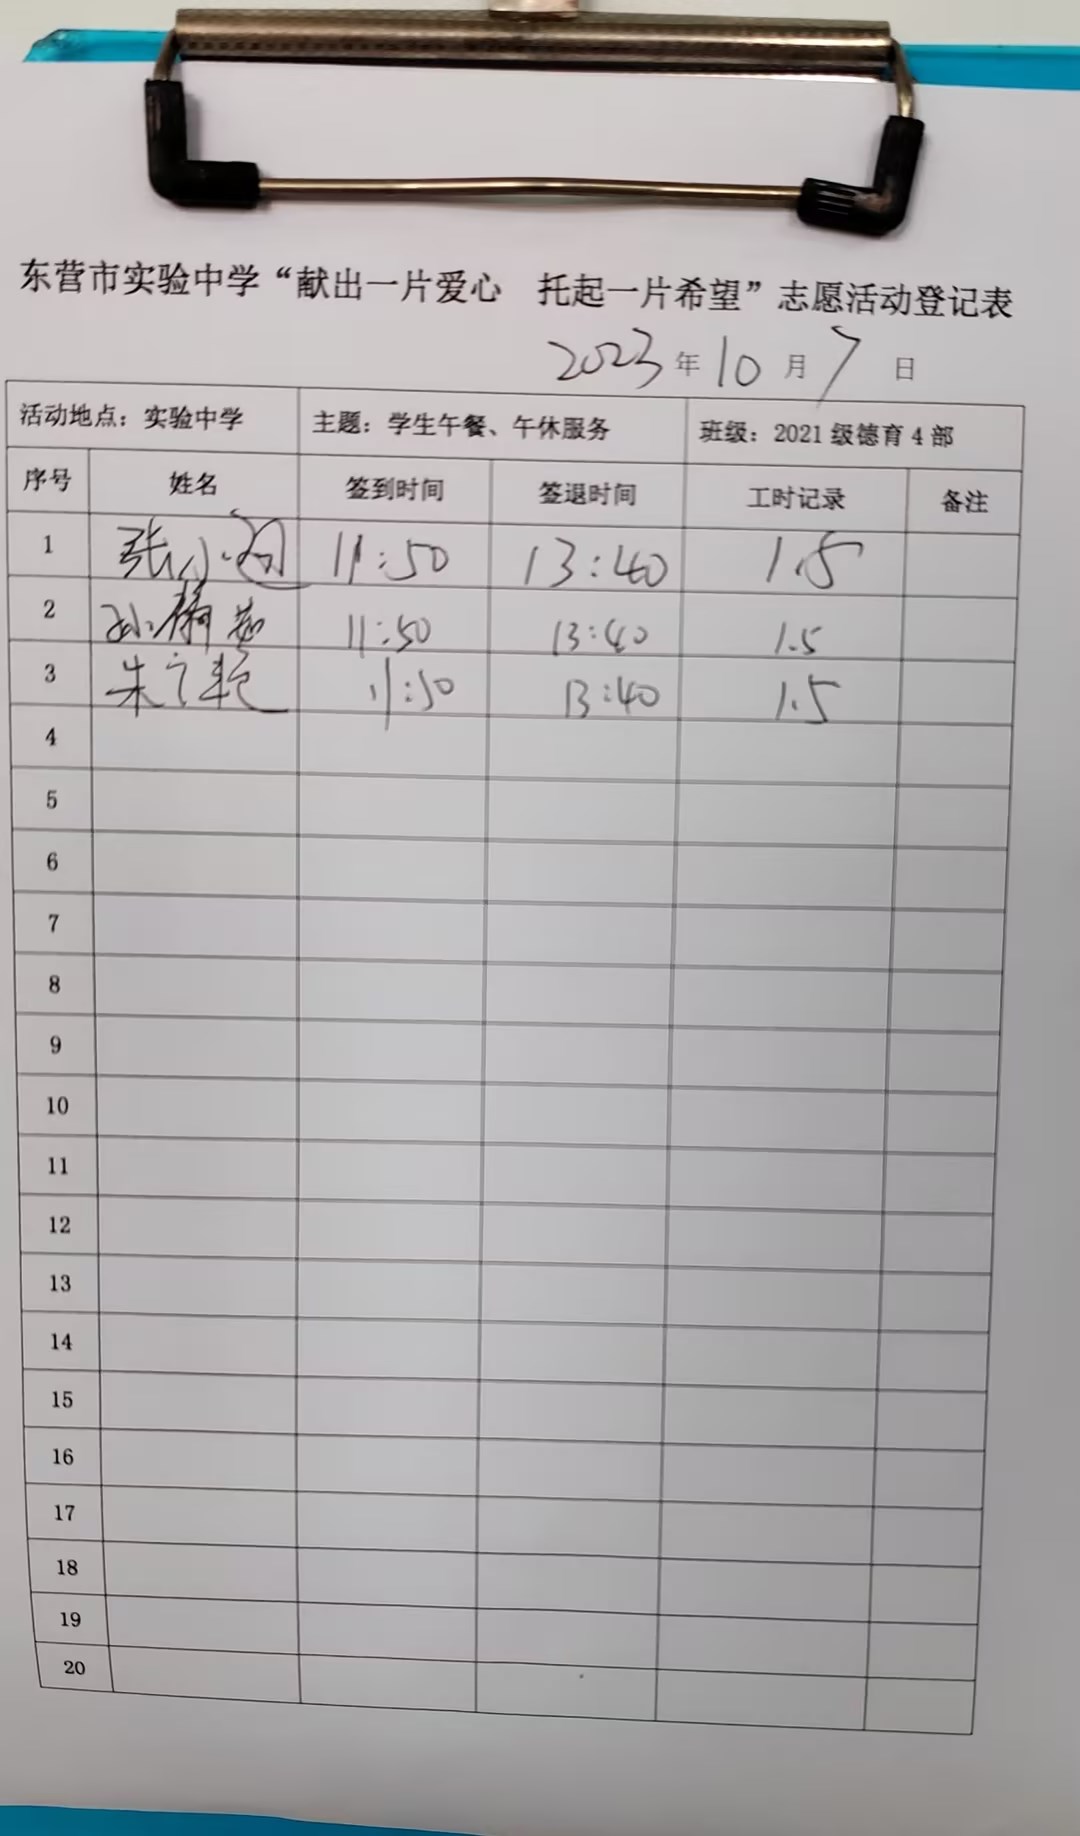 东营市实验中学“献出一片爱心 托起一片希望”志愿活动登记表
2023年10月7日
活动地点：实验中学 主题：学生午餐、午休服务 班级：2021级德育4部
序号 姓名 签到时间 签退时间 工时记录 备注
1 张小 11:50 13:40 1.5
2 孙 11:50 13:40 1.5
3 朱 11:50 13:40 1.5
4
5
6
7
8
9
10
11
12
13
14
15
16
17
18
19
20